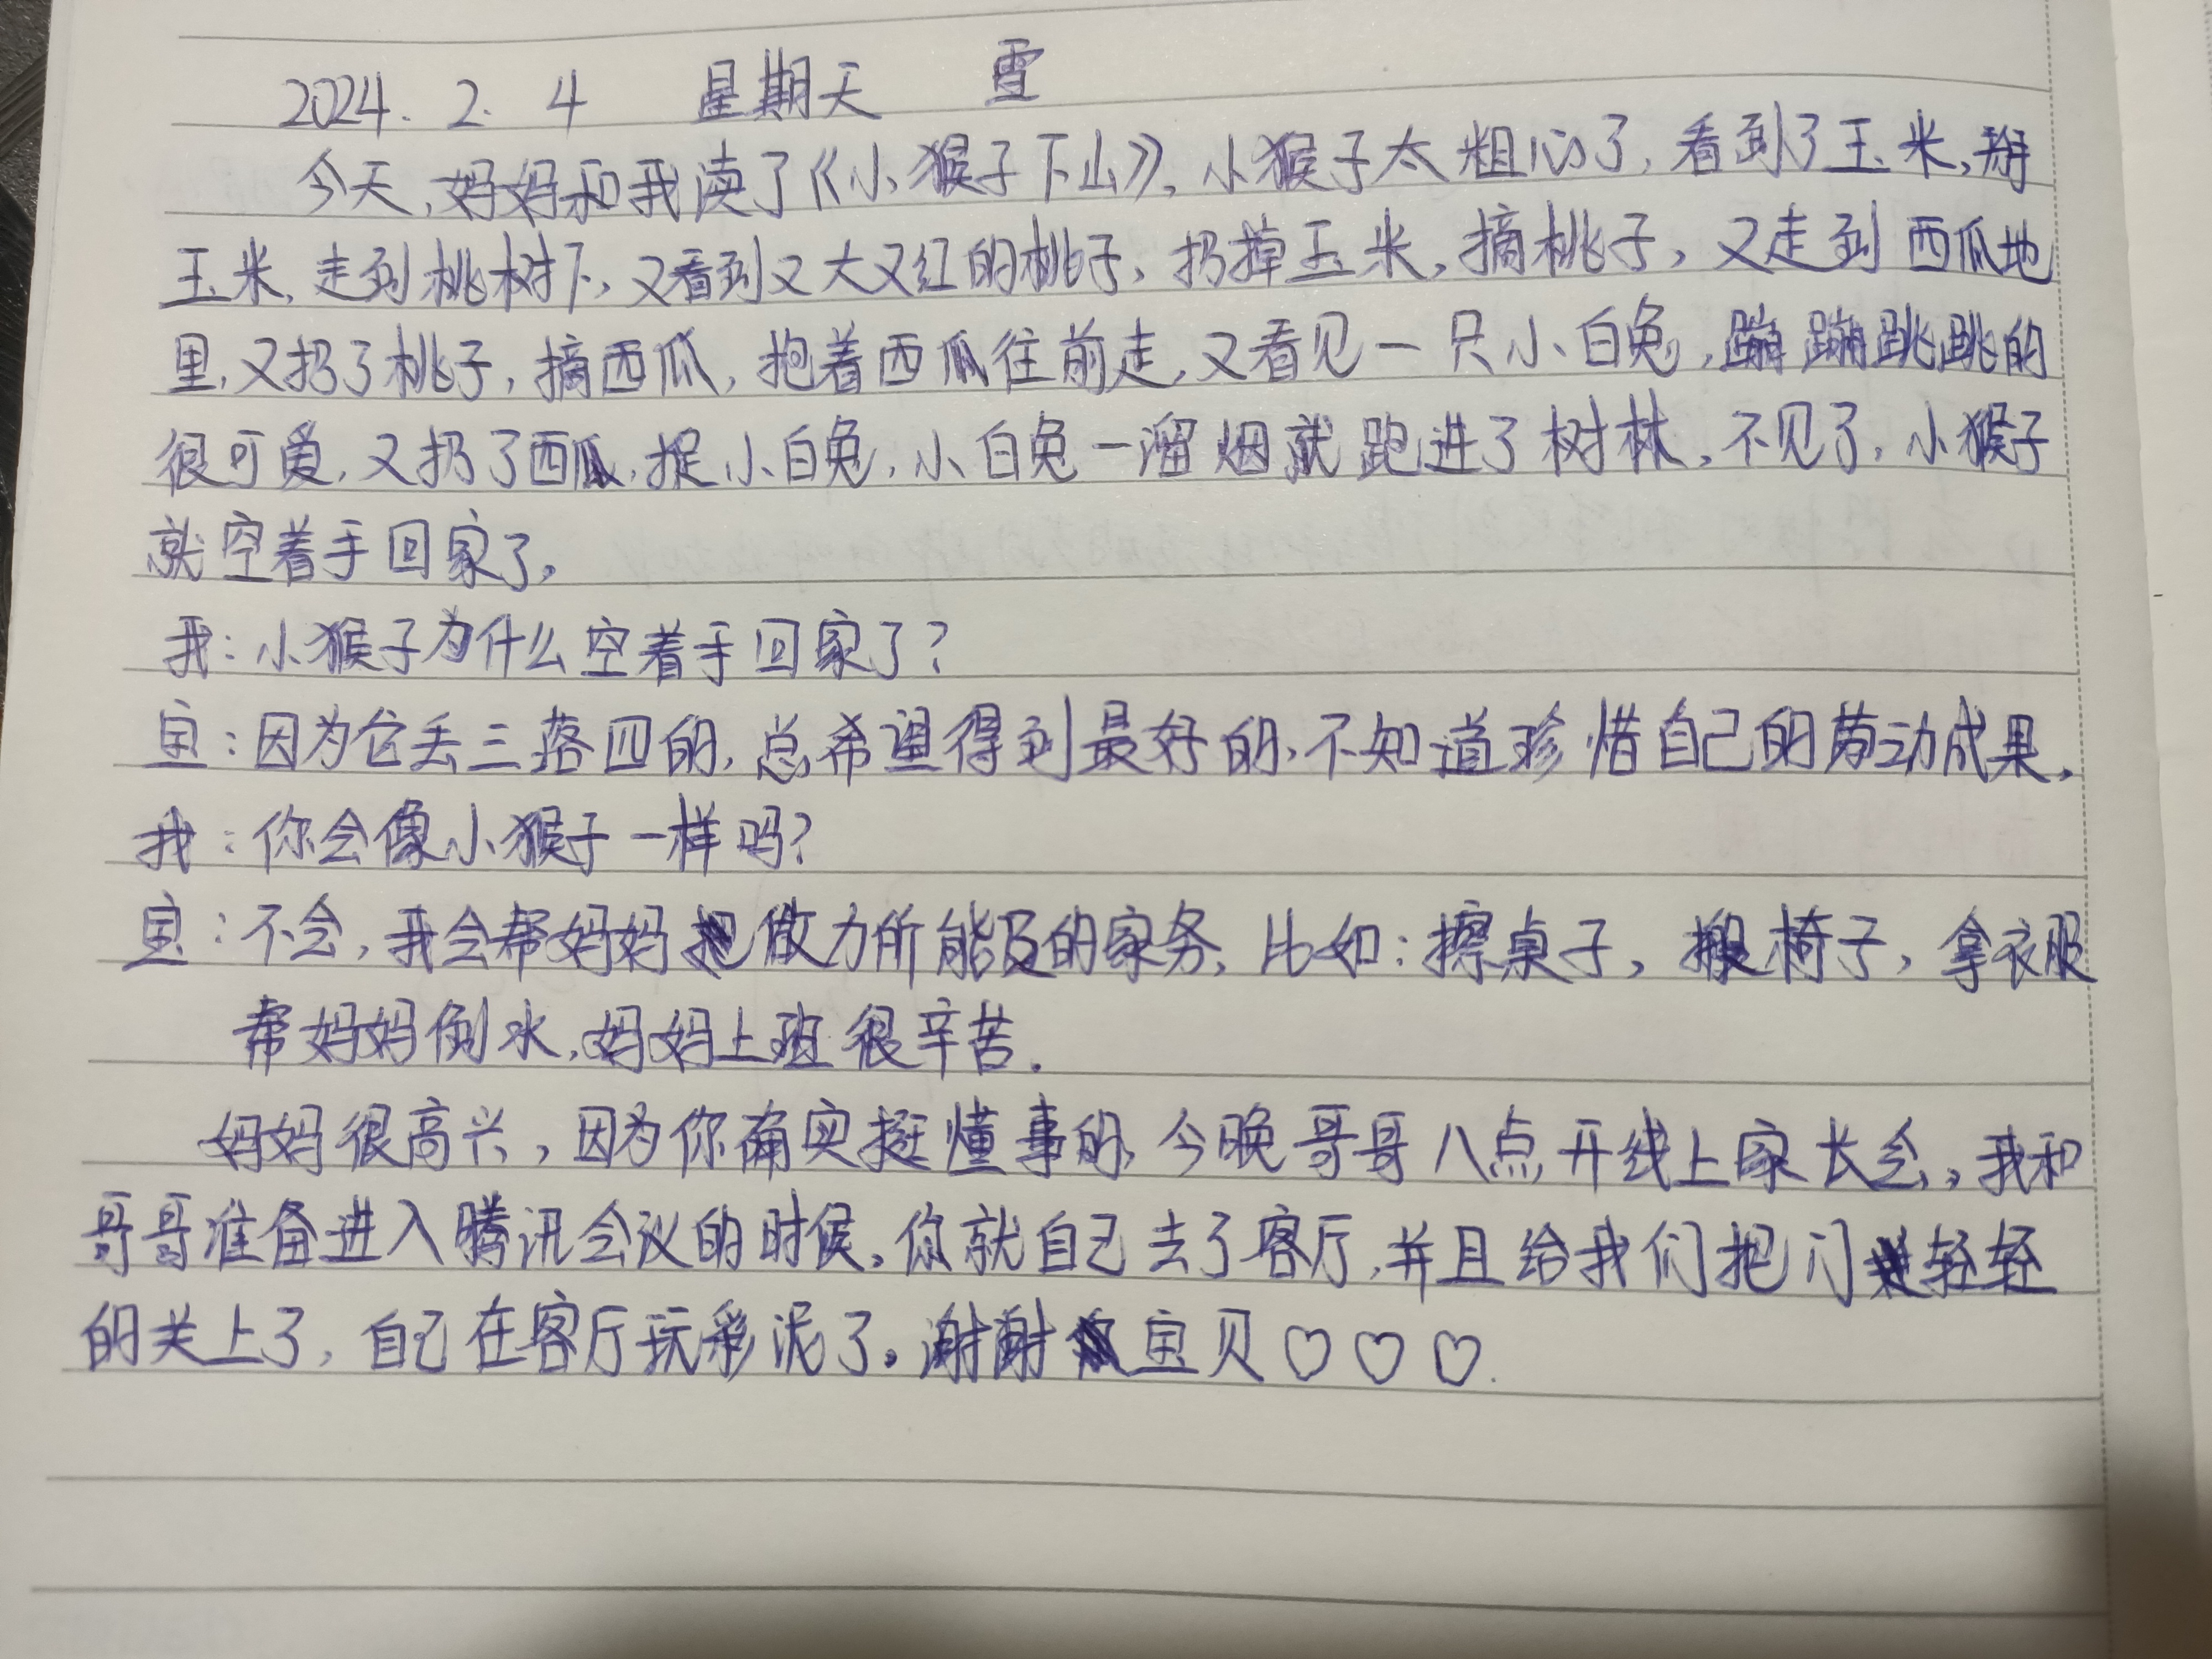 2024.2.4 星期天 雪
今天,妈妈和我读了《小猴子下山》,小猴子太粗心了,看到了玉米,掰
玉米,走到桃树下,又看到又大又红的桃子,扔掉玉米,摘桃子,又走到西瓜地
里,又扔了桃子,摘西瓜,抱着西瓜往前走,又看见一只小白兔,蹦蹦跳跳的
很可爱,又扔了西瓜,捉小白兔,小白兔一溜烟就跑进了树林,不见了,小猴子
就空着手回家了。
我:小猴子为什么空着手回家了?
宝:因为它丢三落四的,总希望得到最好的,不知道珍惜自己的劳动成果,
我:你会像小猴子一样吗?
宝:不会,我会帮妈妈做力所能及的家务,比如:擦桌子,搬椅子,拿衣服
帮妈妈倒水,妈妈上班很辛苦.
妈妈很高兴,因为你确实挺懂事的,今晚哥哥八点开线上家长会,我和
哥哥准备进入腾讯会议的时候,你就自己去了客厅,并且给我们把门轻轻
的关上了,自己在客厅玩彩泥了。谢谢宝贝♡♡♡.